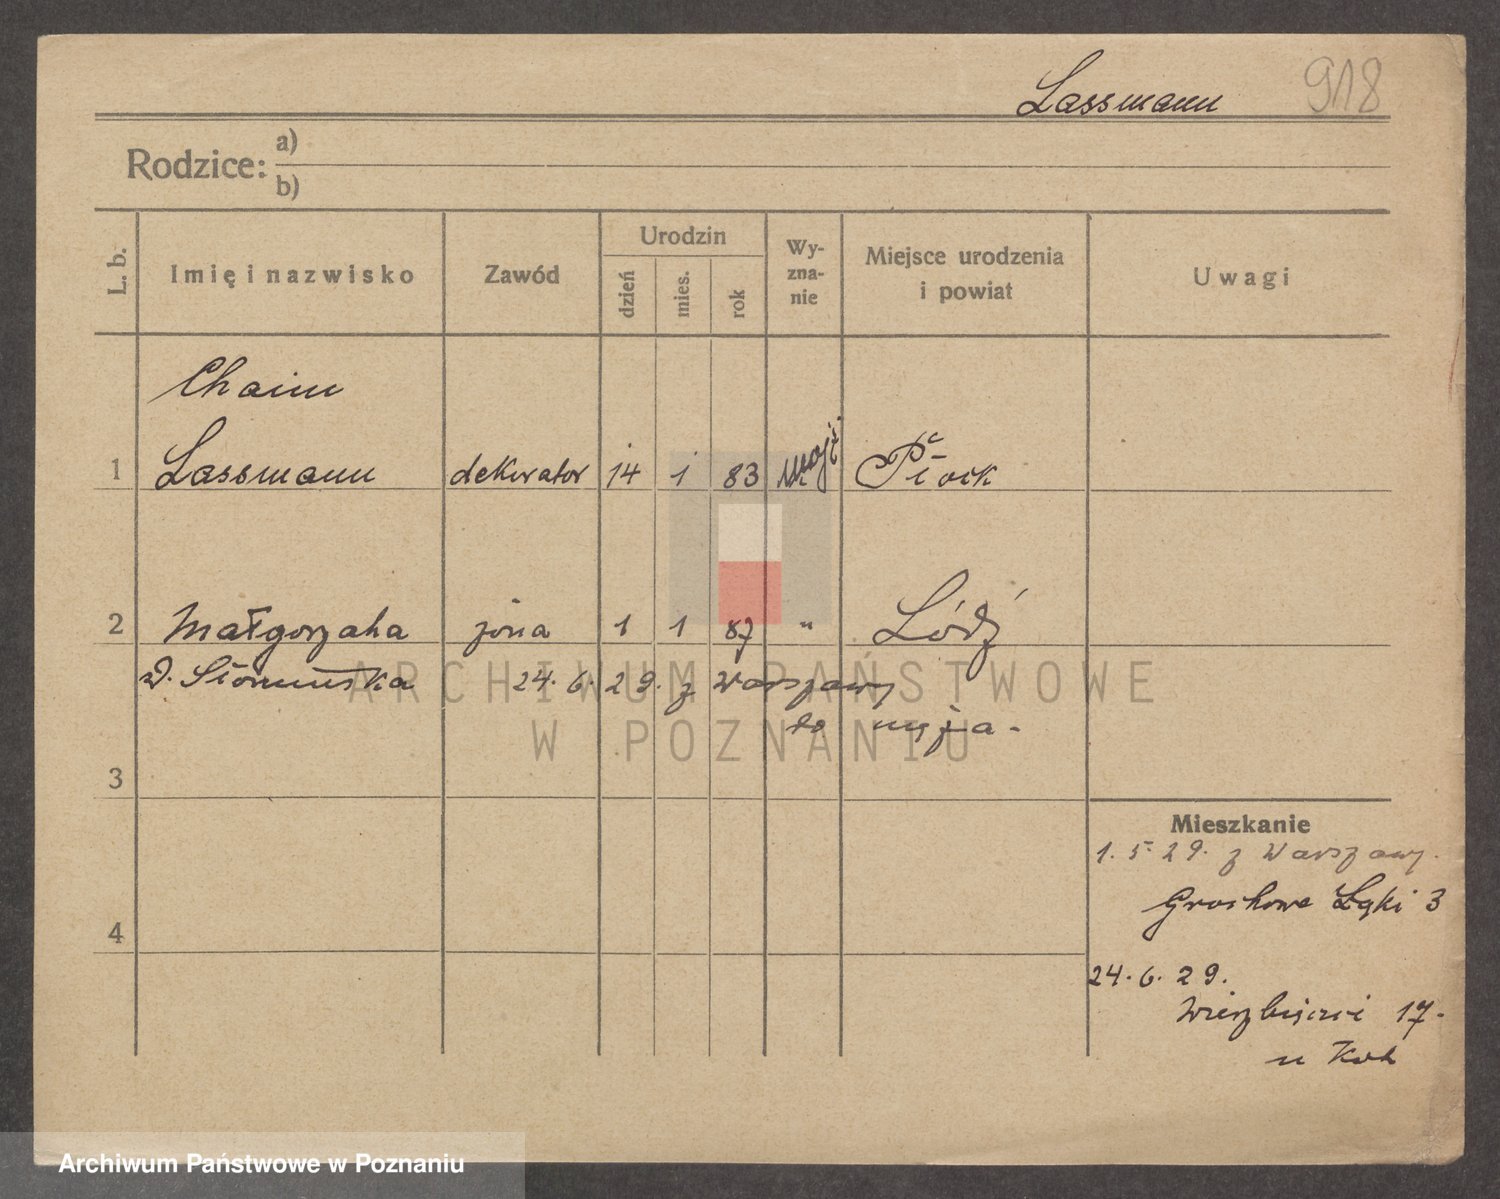 Lassmann 918
Rodzice:
a)
b)
L. b.
Imię i nazwisko
Zawód
Urodzin
dzień
mies.
rok
Wy-
zna-
nie
Miejsce urodzenia
i powiat
Uwagi
Chaim
1 Lassmann dekorator 14 1 83 mojż. Płock
2 Małgorzata żona 1 1 87 " Łódź
24.6.29. z Warszawy
do męża.
3
4
Mieszkanie
1.5.29. z Warszawy.
Grochowe Łąki 3
24.6.29.
Wierzbięcice 17.
u
ARCHIWUM PAŃSTWOWE
W POZNANIU
Archiwum Państwowe w Poznaniu